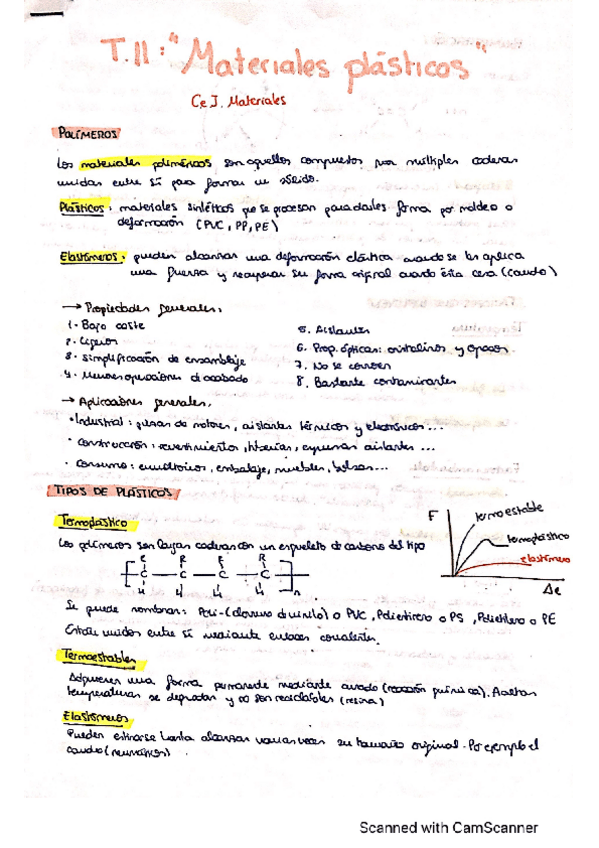 T.11: "Materiales plásticos"
Ce J. Materiales
POLÍMEROS
Los materiales poliméricos son aquellos compuestos por múltiples cadenas
unidas entre sí para formar un sólido.
Plásticos: materiales sintéticos que se procesan para darles forma por moldeo o
deformación (PVC, PP, PE)
Elastómeros: pueden alcanzar una deformación elástica cuando se les aplica
una fuerza y recuperar su forma original cuando ésta cesa (caucho)
→ Propiedades generales:
1. Bajo coste
2. Ligeros
3. Simplificación de ensamblaje
4. Menores operaciones de acabado
5. Aislantes
6. Prop. ópticas: cristalinos y opacos.
7. No se corroen
8. Bastante contaminantes
→ Aplicaciones generales:
• Industrial: piezas de motores, aislantes térmicos y electrónicos...
• Construcción: revestimientos, tuberías, espumas aislantes...
• Consumo: envoltorios, embalaje, muebles, bolsas...
TIPOS DE PLÁSTICOS
Termoplástico
Los polímeros son largas cadenas con un esqueleto de carbono del tipo
R R
C C C C
H H H H n
F
termoestable
termoplástico
elastómero
Δe
Se puede nombrar: Poli-(cloruro de vinilo) o PVC, Poliestireno o PS, Polietileno o PE
Están unidos entre sí mediante enlaces covalentes.
Termoestables
Adquieren una forma permanente mediante curado (reacción química). A altas
temperaturas se degradan y no son reciclables (resina)
Elastómeros
Pueden estirarse hasta alcanzar varias veces su tamaño original. Por ejemplo el
caucho (neumáticos)
Scanned with CamScanner